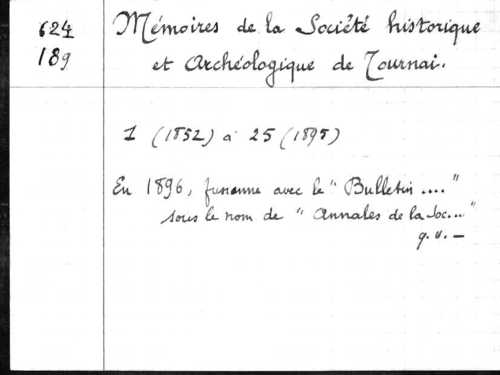 624
189
Mémoires de la Société historique
et Archéologique de Tournai.
1 (1852) à 25 (1895)
En 1896, fusionne avec le "Bulletin ...."
sous le nom de "Annales de la Soc..."
q.v. —